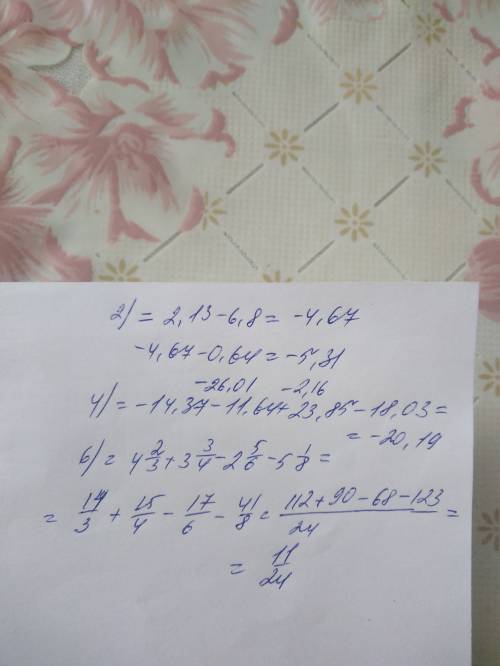 2) = 2,13-6,8 = -4,67
-4,67-0,64 = -5,31
-26,01 -2,16
4) = -14,37-11,64+23,85-18,03 =
= -20,19
6) = 4 2/3 + 3 3/4 - 2 5/6 - 5 1/8 =
= 14/3 + 15/4 - 17/6 - 41/8 = (112+90-68-123)/24 =
= 11/24